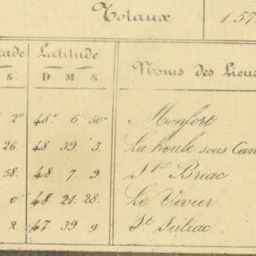 Totaux 157
Latitude
S D M S Noms des Lieux
2 48 6 50 Monfort
26 48 39 3 La houle sous Can
58 48 7 9 St Briac
0 48 21 28 Le Vivier
2 47 39 9 St Suliac